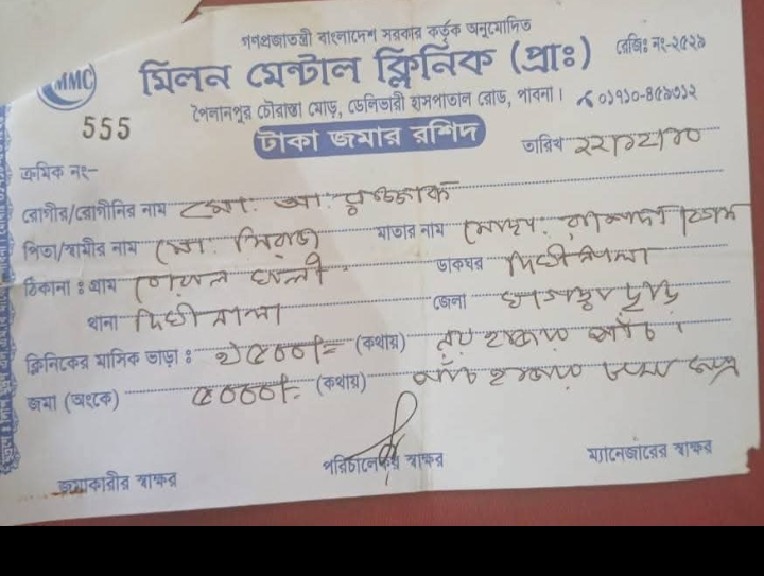 গণপ্রজাতন্ত্রী বাংলাদেশ সরকার কর্তৃক অনুমোদিত
MMC মিলন মেন্টাল ক্লিনিক (প্রাঃ) রেজিঃ নং-২৫২৯
পৈলানপুর চৌরাস্তা মোড়, ডেলিভারী হাসপাতাল রোড, পাবনা।
555 টাকা জমার রশিদ তারিখ
ক্রমিক নং-
রোগীর/রোগীনির নাম মো: আ: রাজ্জাক
পিতা/স্বামীর নাম মো: সিরাজ মাতার নাম মোছা: বেগম
ঠিকানা : গ্রাম ডাকঘর দিঘীনালা
থানা দিঘীনালা জেলা খাগড়াছড়ি
ক্লিনিকের মাসিক ভাড়া : (কথায়) নয় হাজার পাঁচ
জমা (অংকে) ৫০০০/= (কথায়) পাঁচ হাজার টাকা মাত্র
জমাকারীর স্বাক্ষর পরিচালকের স্বাক্ষর ম্যানেজারের স্বাক্ষর